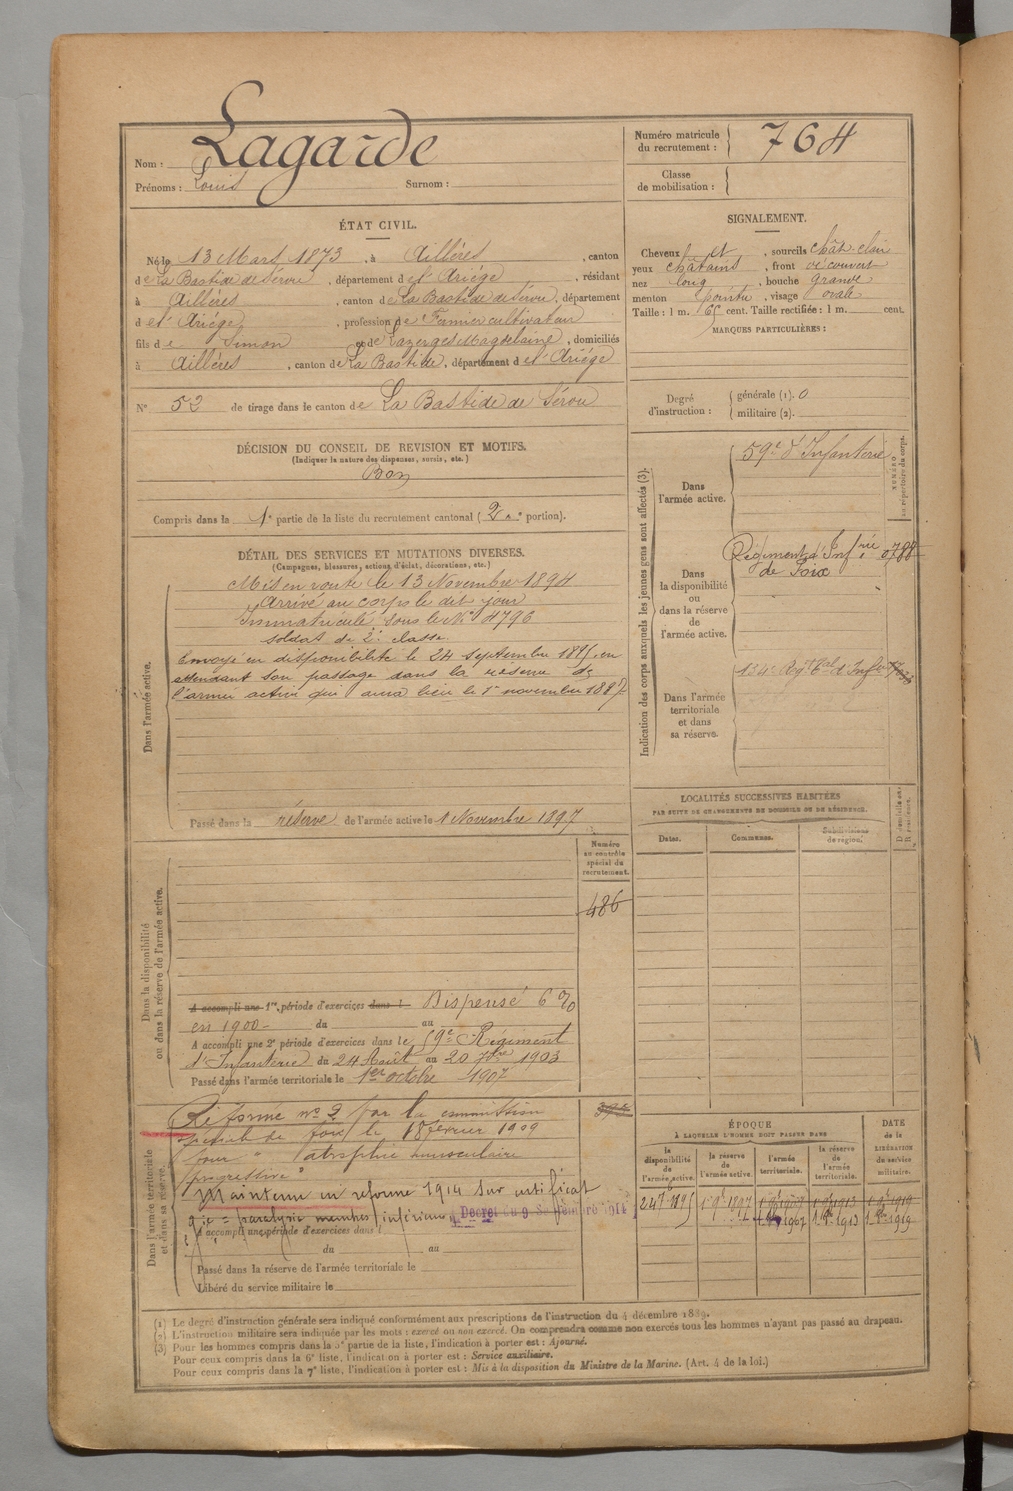 Nom : Lagarde
Prénoms : Louis Surnom :
Numéro matricule du recrutement : 764
Classe de mobilisation :
ÉTAT CIVIL.
Né le 13 Mars 1873, à Aillères, canton
de La Bastide de Sérou, département de l'Ariége, résidant
à Aillères, canton de La Bastide de Sérou, département
de l'Ariége, profession de Fermier cultivateur
fils de Simon et de Lazerges Magdelaine, domiciliés
à Aillères, canton de La Bastide, département de l'Ariége
N° 52 de tirage dans le canton de La Bastide de Sérou
SIGNALEMENT.
Cheveux et sourcils chât. clair
yeux châtains, front découvert
nez long, bouche grande
menton pointu, visage ovale
Taille : 1 m. 65 cent. Taille rectifiée : 1 m. cent.
MARQUES PARTICULIÈRES :
Degré d'instruction : générale (1). 0
militaire (2).
DÉCISION DU CONSEIL DE REVISION ET MOTIFS.
(Indiquer la nature des dispenses, sursis, etc.)
Bon
Compris dans la 1e partie de la liste du recrutement cantonal (2e portion).
DÉTAIL DES SERVICES ET MUTATIONS DIVERSES.
(Campagnes, blessures, actions d'éclat, décorations, etc.)
Dans l'armée active.
Mis en route le 13 Novembre 1894
Arrivé au corps le dit jour
Immatriculé sous le N° 4796
soldat de 2e classe
Envoyé en disponibilité le 24 septembre 1895 en
attendant son passage dans la réserve de
l'armée active qui aura lieu le 1er novembre 1897
Passé dans la réserve de l'armée active le 1 Novembre 1897
Indication des corps auxquels les jeunes gens sont affectés (3).
NUMÉRO au répertoire du corps.
Dans l'armée active.
59e d'Infanterie
Dans la disponibilité ou dans la réserve de l'armée active.
Régiment d'Infrie 0788
de Foix
Dans l'armée territoriale et dans sa réserve.
134e Regt Tal d'Infie
LOCALITÉS SUCCESSIVES HABITÉES
PAR SUITE DE CHANGEMENTS DE DOMICILE OU DE RÉSIDENCE.
Dates. Communes. Subdivisions de région.
Dans la disponibilité ou dans la réserve de l'armée active.
Numéro au contrôle spécial du recrutement.
486
A accompli une 1re période d'exercices dans l Dispensé 6 %
en 1900 du au
A accompli une 2e période d'exercices dans le 59e Régiment
d'Infanterie du 24 Août au 20 7bre 1903
Passé dans l'armée territoriale le 1er octobre 1907
Dans l'armée territoriale et dans sa réserve.
Réformé n° 2 par la commission
spéciale de foix le 18 février 1909
pour "atrophie musculaire
progressive"
Maintenu en réforme 1914 sur certificat
paralysie membres inférieurs Décret du 9 Septembre 1914
A accompli une période d'exercices dans l
du au
Passé dans la réserve de l'armée territoriale le
Libéré du service militaire le
ÉPOQUE
À LAQUELLE L'HOMME DOIT PASSER DANS
la disponibilité de l'armée active. la réserve de l'armée active. l'armée territoriale. la réserve de l'armée territoriale.
DATE de la LIBÉRATION du service militaire.
(1) Le degré d'instruction générale sera indiqué conformément aux prescriptions de l'instruction du 4 décembre 1889.
(2) L'instruction militaire sera indiquée par les mots : exercé ou non exercé. On comprendra comme non exercés tous les hommes n'ayant pas passé au drapeau.
(3) Pour les hommes compris dans la 5e partie de la liste, l'indication à porter est : Ajourné.
Pour ceux compris dans la 6e liste, l'indication à porter est : Service auxiliaire.
Pour ceux compris dans la 7e liste, l'indication à porter est : Mis à la disposition du Ministre de la Marine. (Art. 4 de la loi.)